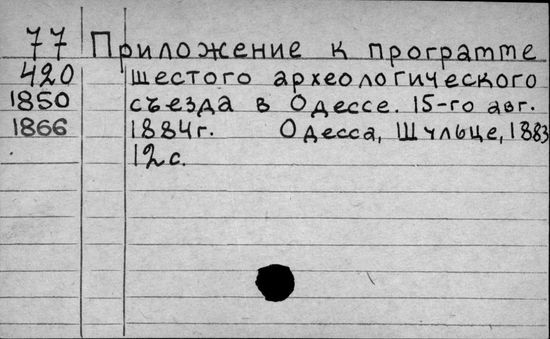 77 Приложение к программе
420 шестого археологического
1850 съезда в Одессе. 15-го авг.
1866 1884г. Одесса, Шульце, 1883
12с.